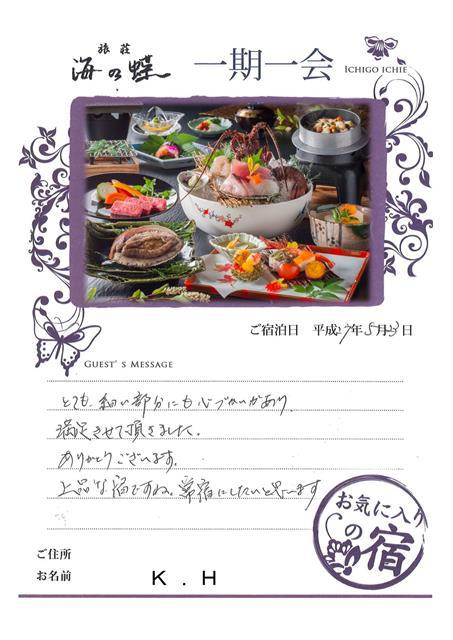 旅荘
海の蝶
一期一会
ICHIGO ICHIE
ご宿泊日 平成27年5月23日
GUEST'S MESSAGE
とても、細い部分にも心づかいがあり
満足させて頂きました。
ありがとうございます。
上品な宿ですね。常宿にしたいと思います
お気に入りの宿
ご住所
お名前 K . H